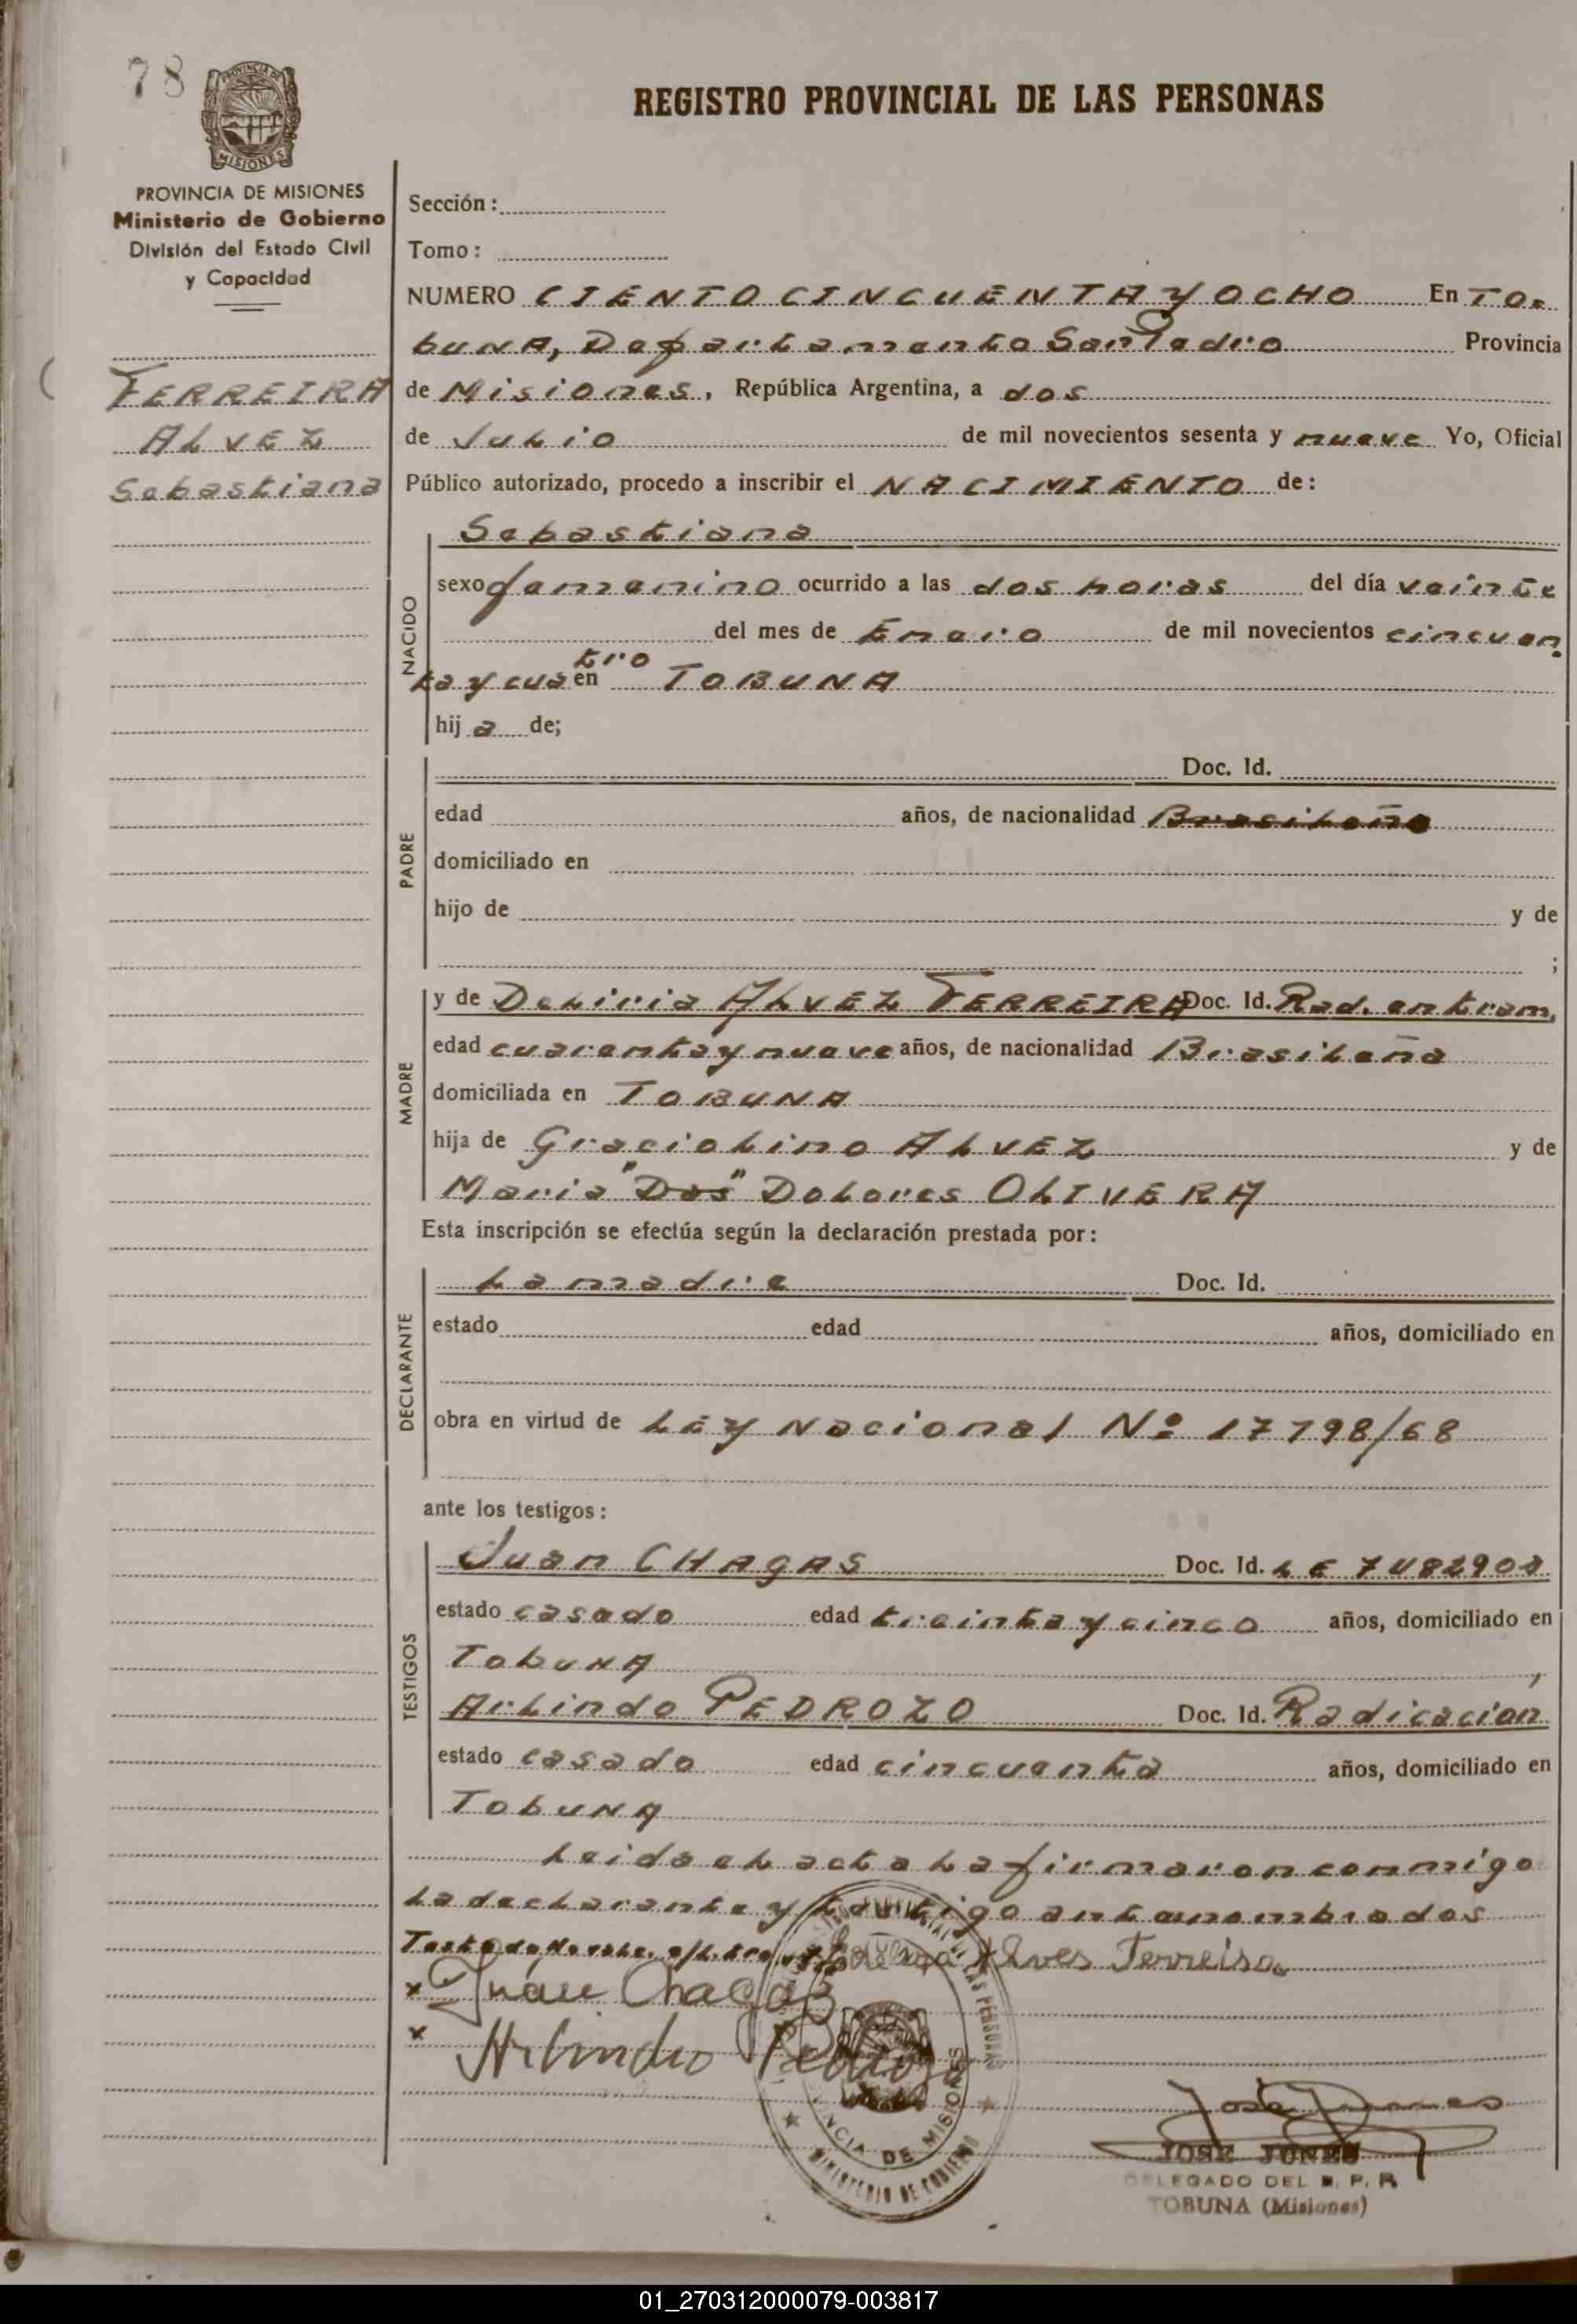 78
REGISTRO PROVINCIAL DE LAS PERSONAS
PROVINCIA DE
MISIONES
PROVINCIA DE MISIONES
Ministerio de Gobierno
División del Estado Civil
y Capacidad
FERREIRA
ALVEZ
Sebastiana
Sección:
Tomo:
NUMERO CIENTO CINCUENTA Y OCHO En TO=
buNA, Departamento San Pedro Provincia
de Misiones, República Argentina, a dos
de Julio de mil novecientos sesenta y nueve Yo, Oficial
Público autorizado, procedo a inscribir el NACIMIENTO de:
NACIDO
Sebastiana
sexo femenino ocurrido a las dos horas del día veinte
del mes de Enero de mil novecientos cincuen
ta y cuatro en TOBUNA
hija de;
PADRE
Doc. Id.
edad años, de nacionalidad Brasileño
domiciliado en
hijo de y de
;
MADRE
y de Deliria ALVEZ FERREIRA Doc. Id. Rad. en tram.
edad cuarenta y nueve años, de nacionalidad Brasileña
domiciliada en TOBUNA
hija de Graciolino ALVEZ y de
Maria "Das" Dolores OLIVERA
Esta inscripción se efectúa según la declaración prestada por:
DECLARANTE
La madre Doc. Id.
estado edad años, domiciliado en
obra en virtud de LEY Nacional Nº 17798/68
ante los testigos:
TESTIGOS
Juan CHAGAS Doc. Id. LE
estado casado edad treinta y cinco años, domiciliado en
TobuNA ,
Arlindo PEDROZO Doc. Id. Radicación
estado casado edad cincuenta años, domiciliado en
TobuNA
Leida el acta la firmaron conmigo
la declarante y testigo antenombrados
Testado No vale. Alves Ferreira
x Juan Chagas
x Arlindo Pedrozo
PROVINCIA DE MISIONES
MINISTERIO DE GOBIERNO
José Junes
JOSE JUNES
DELEGADO DEL R. P. P.
TOBUNA (Misiones)
01_270312000079-003817